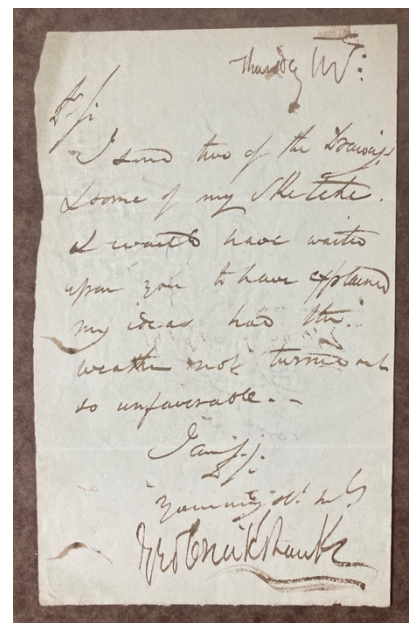 Thursday
Dr Sir
I send two of the Drawings
& some of my Sketche.
I would have waited
upon you to have explained
my ideas had the
weather not turned out
so unfavorable. -
I am Dr Sir
Your
Geo Cruikshank